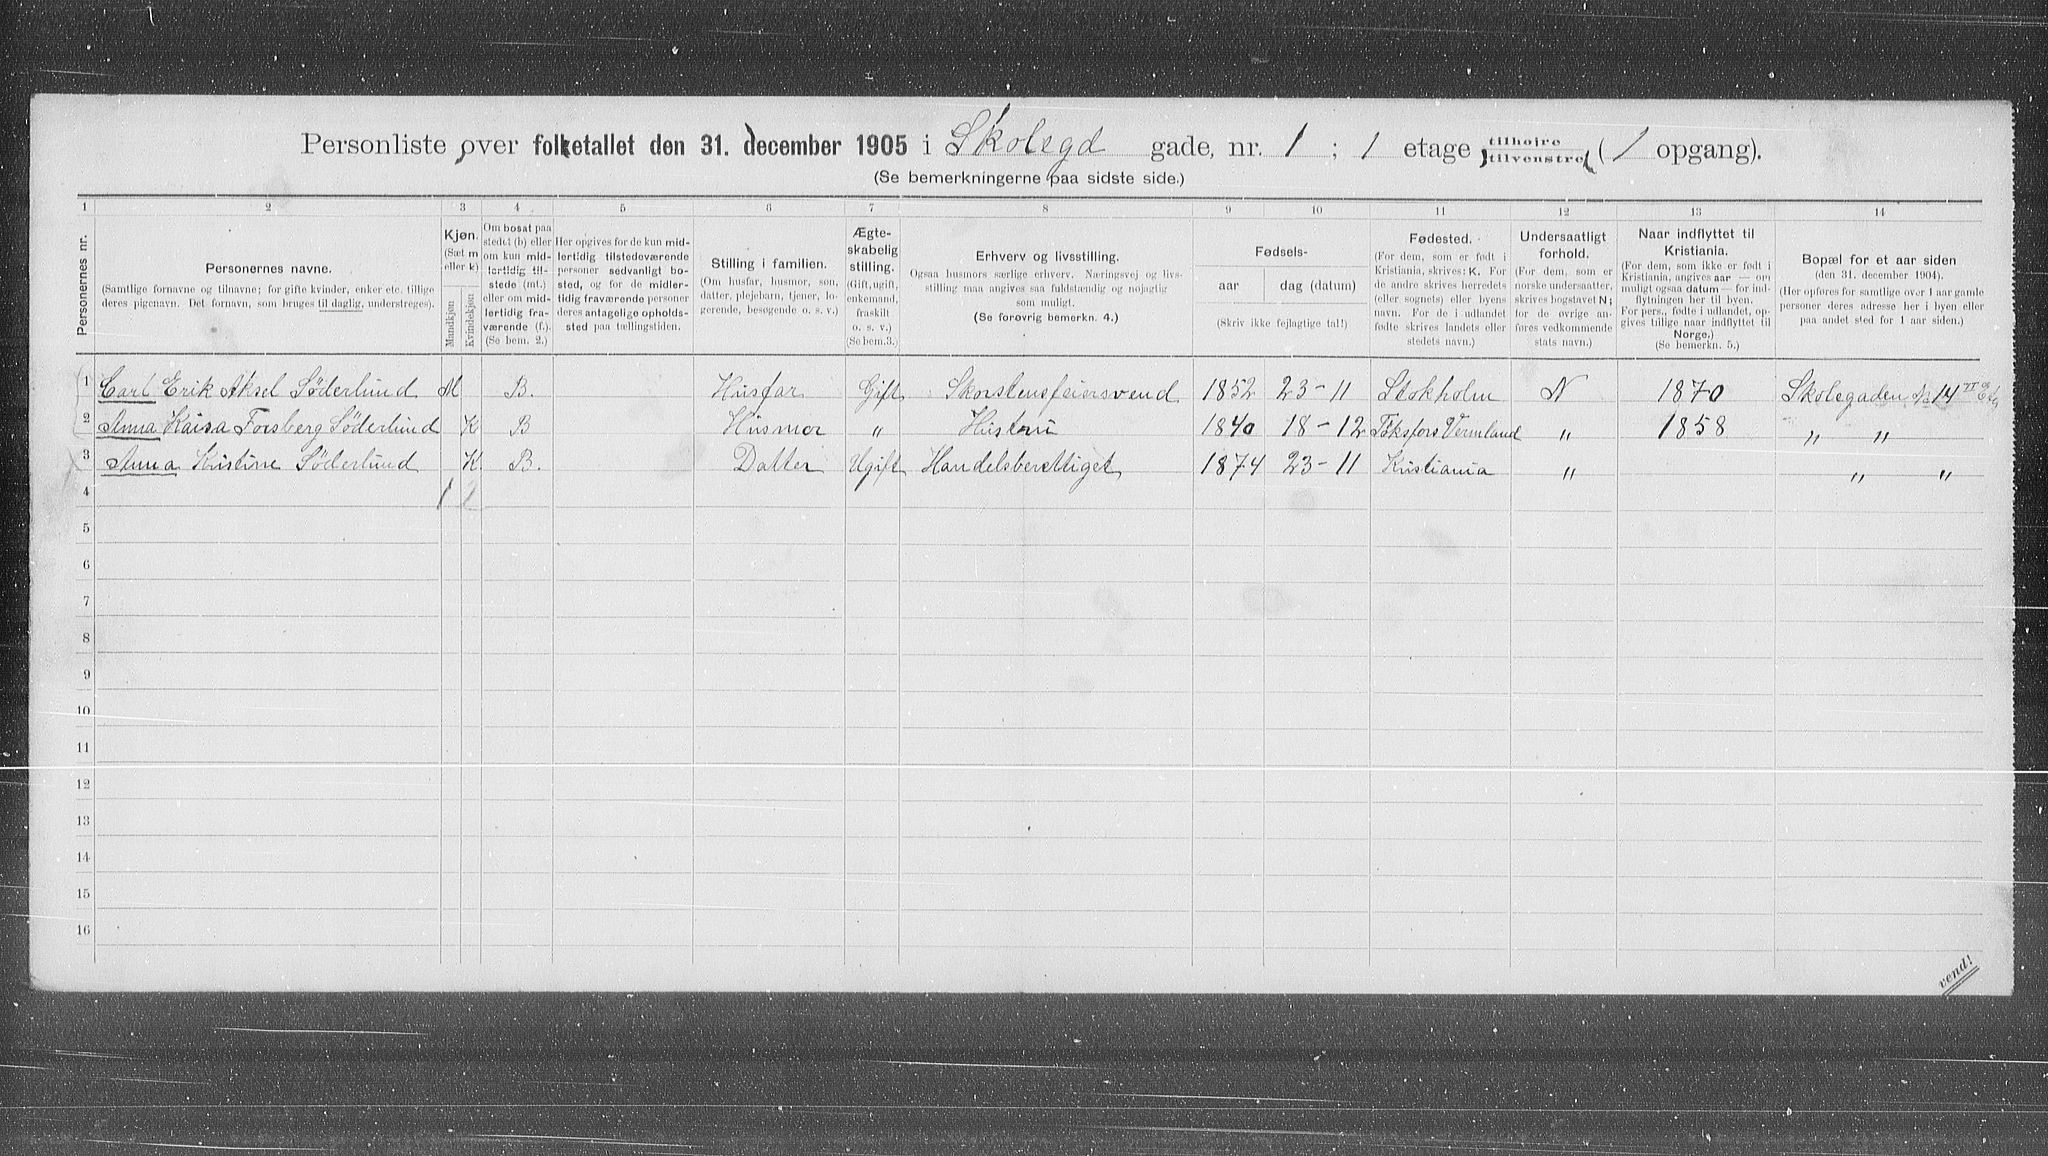 Personliste over folketallet den 31. december 1905 i Skolegd gade, nr. 1 ; 1 etage tilhøjre tilvenstre ( 1 opgang).
(Se bemerkningerne paa sidste side.)
1 2 3 4 5 6 7 8 9 10 11 12 13 14
Personernes nr.
Personernes navne.
(Samtlige fornavne og tilnavne; for gifte kvinder, enker etc. tillige
deres pigenavn. Det fornavn, som bruges til daglig, understreges).
Kjøn.
(Sæt m
eller k)
Mandkjøn
Kvindekjøn
Om bosat paa
stedet (b) eller
om kun mid-
lertidig til-
stede (mt.)
eller om mid-
lertidig fra-
værende (f.).
(Se bem. 2.)
Her opgives for de kun mid-
lertidig tilstedeværende
personer sedvanligt bo-
sted, og for de midler-
tidig fraværende personer
deres antagelige opholds-
sted paa tællingstiden.
Stilling i familien.
(Om husfar, husmor, søn,
datter, plejebarn, tjener, lo-
gerende, besøgende o. s. v.)
Ægte-
skabelig
stilling.
(Gift, ugift,
enkemand,
fraskilt
o. s. v.)
(Se bem.3.)
Erhverv og livsstilling.
Ogsaa husmors særlige erhverv. Næringsvej og livs-
stilling maa angives saa fuldstændig og nøjagtig
som muligt.
(Se forøvrig bemerkn. 4.)
Fødsels-
aar dag (datum)
(Skriv ikke fejlagtige tal!)
Fødested.
(For dem, som er født i
Kristiania, skrives: K. For
de andre skrives herredets
(eller sognets) eller byens
navn. For de i udlandet
fødte skrives landets eller
stedets navn.)
Undersaatligt
forhold.
(For dem, som er
norske undersaatter,
skrives bogstavet N;
for de øvrige an-
føres vedkommende
stats navn.)
Naar indflyttet til
Kristiania.
(For dem, som ikke er født i
Kristiania, angives aar — om
muligt ogsaa datum — for ind-
flytningen her til byen.
For pers., fødte i udlandet, op-
gives tillige naar indflyttet til
Norge.)
(Se bemerkn. 5.)
Bopæl for et aar siden
(den 31. december 1904).
(Her opføres for samtlige over 1 aar gamle
personer deres adresse her i byen eller
paa andet sted for 1 aar siden.)
1 Carl Erik Aksel Söderlund M B. Husfar Gift Skorstensfeiersvend 1852 23-11 Stokholm N 1870 Skolegaden 14
2 Anna Kaisa Forsberg Söderlund K B Husmor " 1840 18-12 Töksfors Vermland " 1858 " "
3 Anna Kristine Söderlund K B. Datter Ugift Handelsberettiget 1874 23-11 Kristiania " " "
4 1 2
5
6
7
8
9
10
11
12
13
14
15
16
vend!